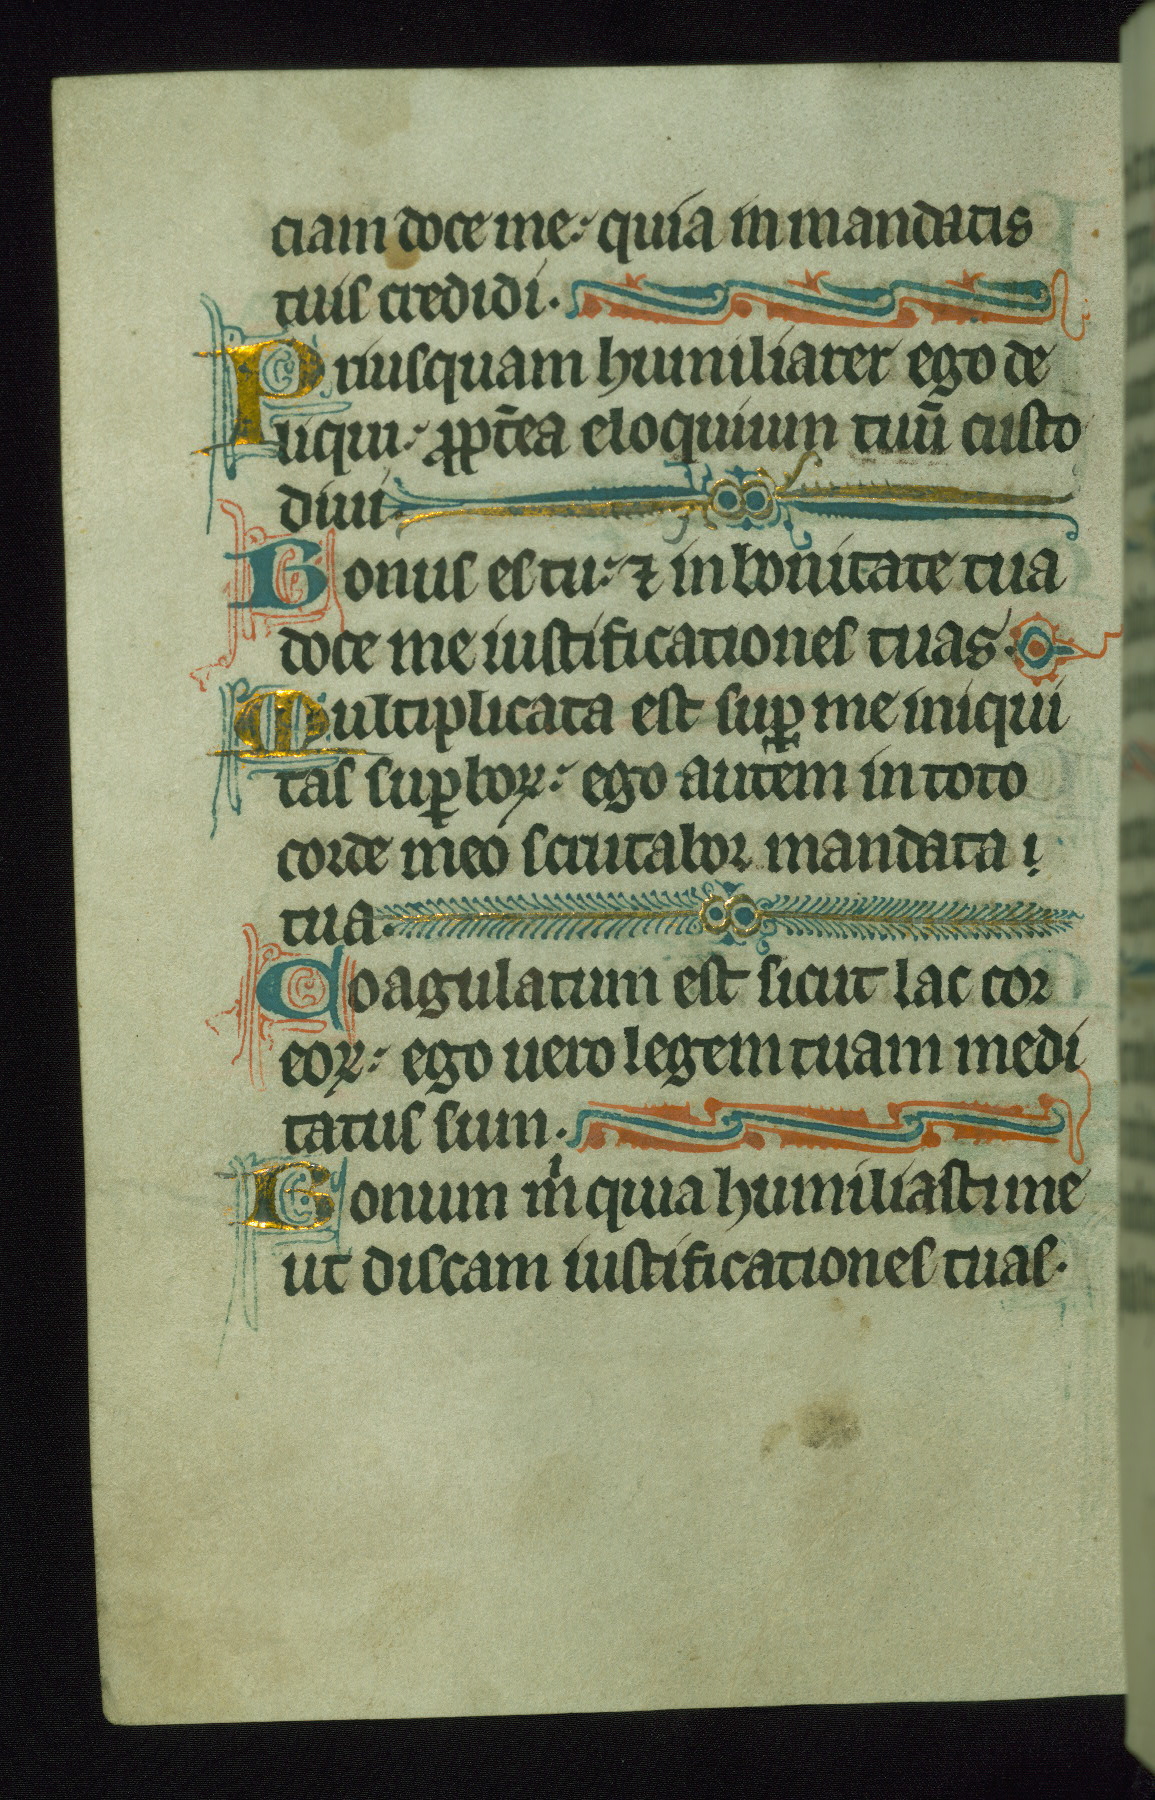 ciam doce me: quia in mandatis
tuis credidi.
Priusquam humiliarer ego de
liqui: ꝓpt̄ea eloquium tuū custo
diui.
Bonus es tu: ⁊ in bonitate tua
doce me iustificationes tuas.
Multiplicata est suꝑ me iniqui
tas suꝑboꝝ: ego autem in toto
corde meo scrutabor mandata
tua.
Coagulatum est sicut lac cor
eoꝝ: ego uero legem tuam medi
tatus sum.
Bonum mⁱ quia humiliasti me
ut discam iustificationes tuas.